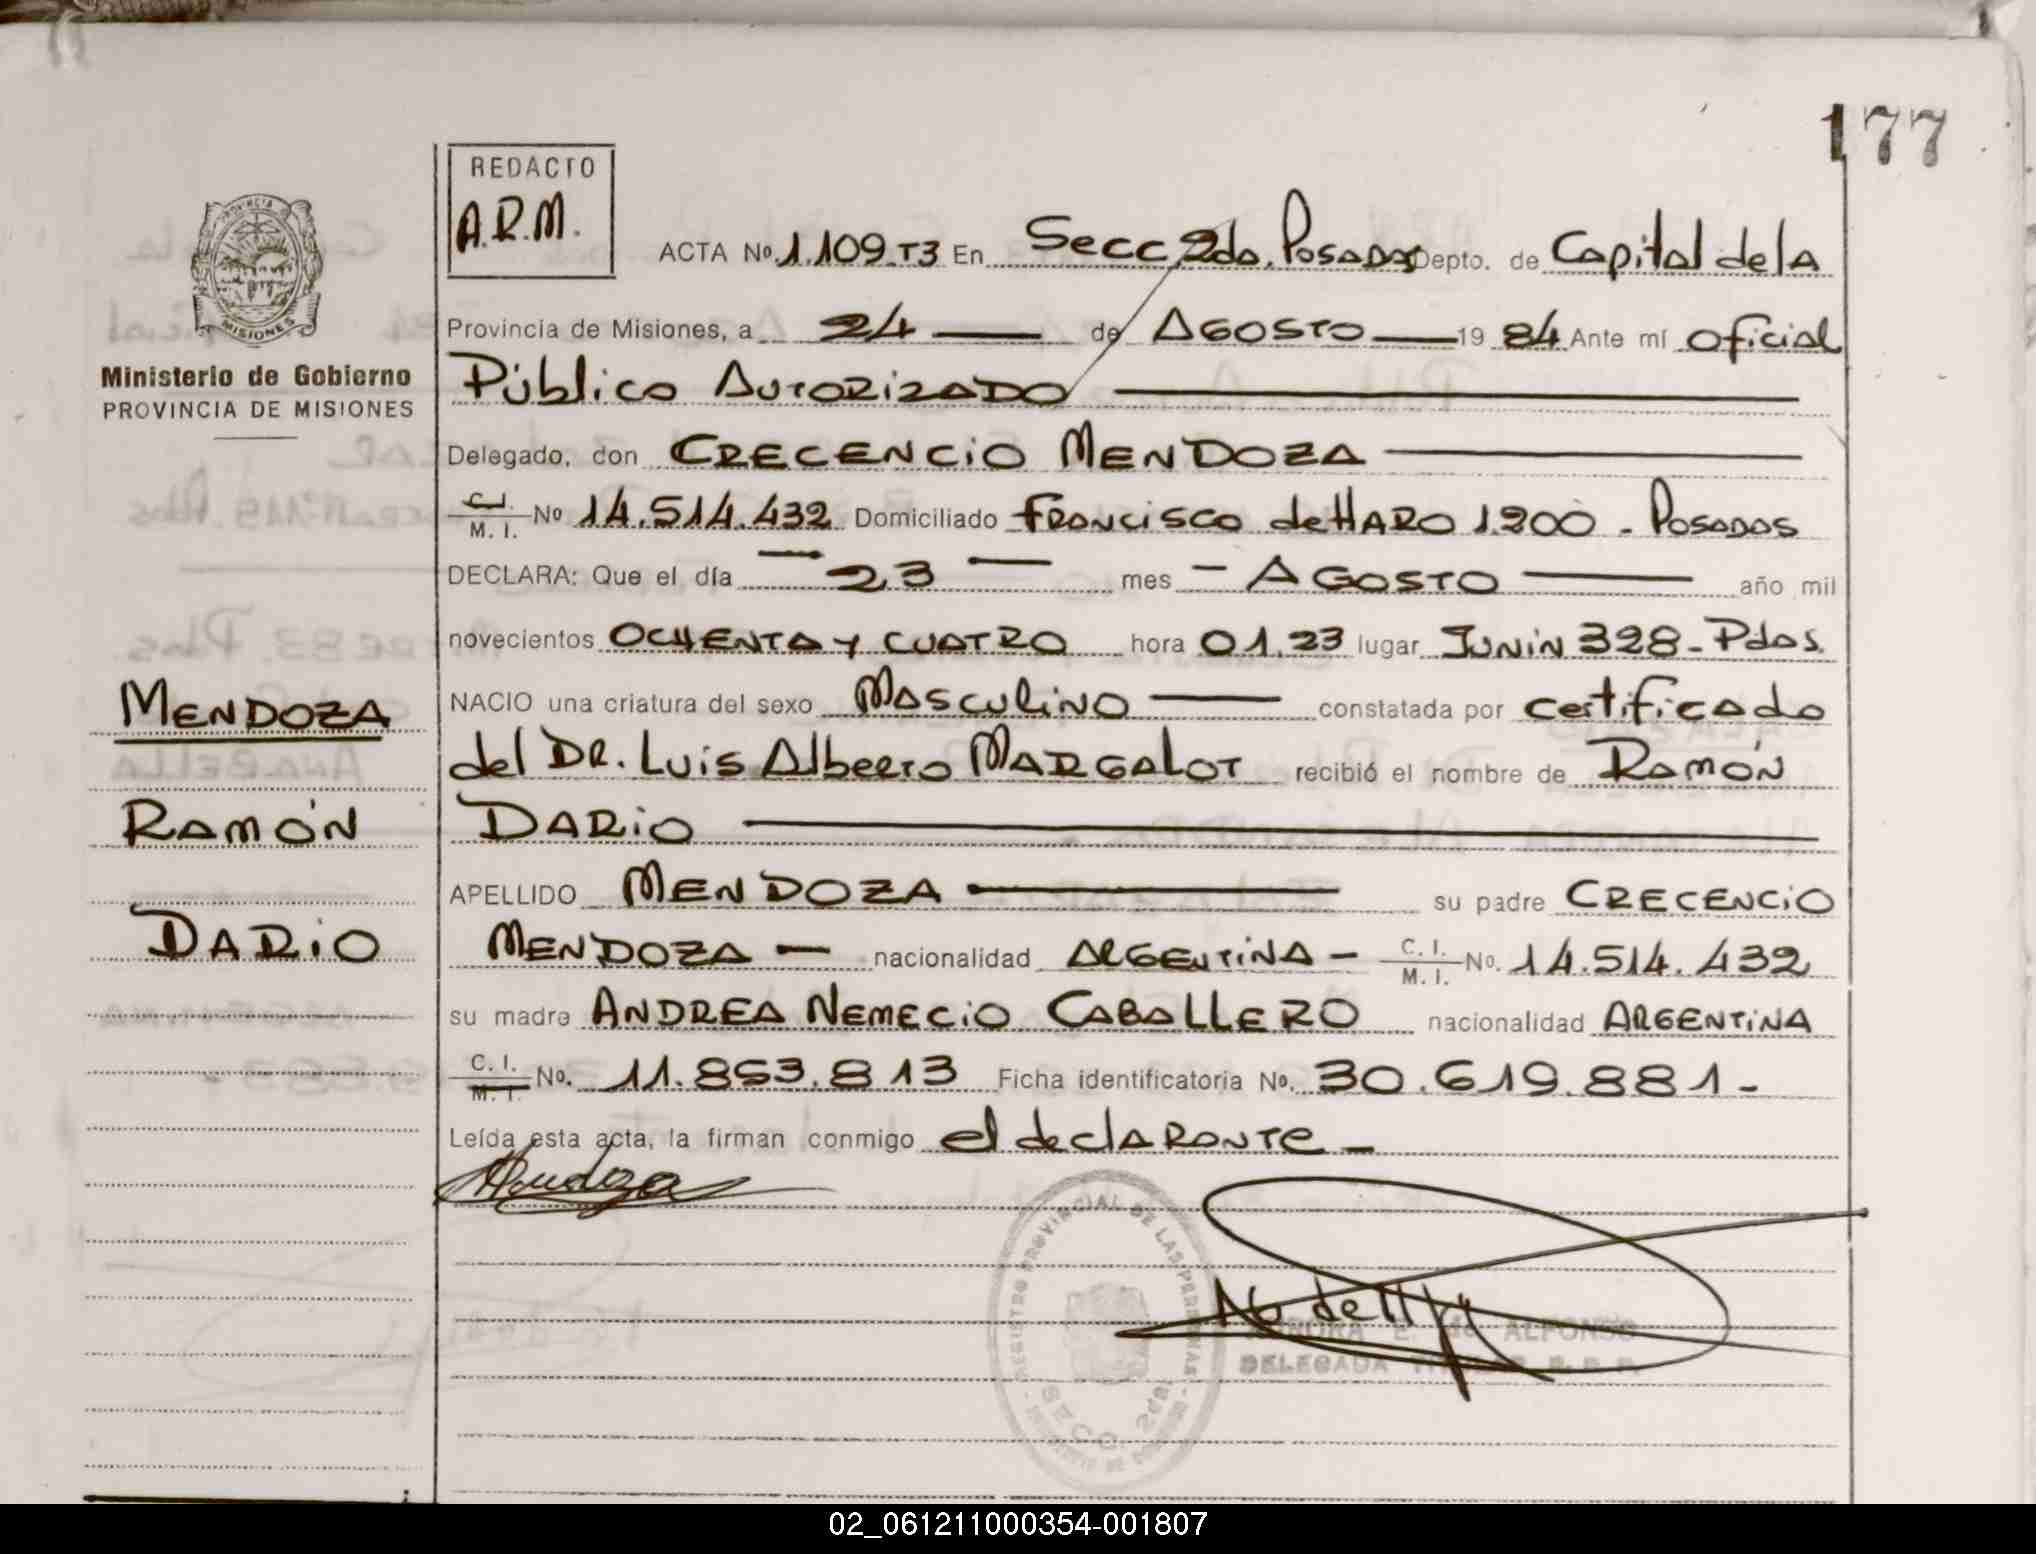 177
REDACTO
A.R.M.
ACTA Nº 1.109 T3 En Secc 2da. Posadas Depto. de Capital de la
Provincia de Misiones, a 24 de Agosto 1984 Ante mí Oficial
Público Autorizado
Delegado, don Crecencio Mendoza
C.I.
M. I. Nº 14.514.432 Domiciliado Francisco de Haro 1.200 - Posadas
DECLARA: Que el día 23 mes Agosto año mil
novecientos Ochenta y cuatro hora 01.23 lugar Junin 328 - Pdas.
NACIO una criatura del sexo Masculino constatada por certificado
del DR. Luis Alberto Margalot recibió el nombre de Ramón
Dario
APELLIDO Mendoza su padre Crecencio
Mendoza - nacionalidad Argentina - C. I.
M. I. No. 14.514.432
su madre Andrea Nemecio Caballero nacionalidad Argentina
C. I.
M. I. No. 11.853.813 Ficha identificatoria Nº. 30.619.881-
Leída esta acta, la firman conmigo el declarante -
Mendoza
PROVINCIA
MISIONES
Ministerio de Gobierno
PROVINCIA DE MISIONES
MENDOZA
RAMÓN
DARIO
REGISTRO PROVINCIAL DE LAS PERSONAS
SECC. 2da.
AURORA E. de ALFONSO
DELEGADA
02_061211000354-001807